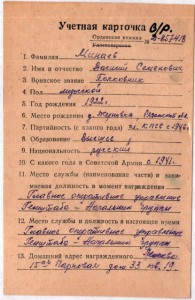 Учетная карточка В/Р.
Орденская книжка № Д-657418
1. Фамилия Минаев
2. Имя и отчество Василий Семенович
3. Воинское звание Полковник
4. Пол мужской
5. Год рождения 1922 г.
6. Место рождения
7. Партийность (с какого года) чл. КПСС с 1946 г.
8. Образование высшее
9. Национальность русский
10. С какого года в Советской Армии с 1941.
11. Место службы (наименование части) и занимаемая должность в момент награждения
Главное оперативное управление
Генштаба – Начальник группы
12. Место службы и должность в настоящее время
Главное оперативное управление
Генштаба – Начальник группы
13. Домашний адрес награжденного г. Москва
15ая Парковая дом 33 кв. 19.